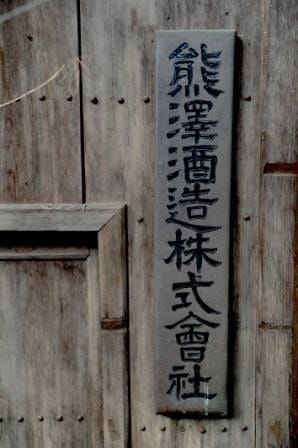 熊澤酒造株式會社